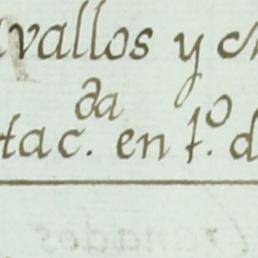 vallos y
da
tac. en t.º d